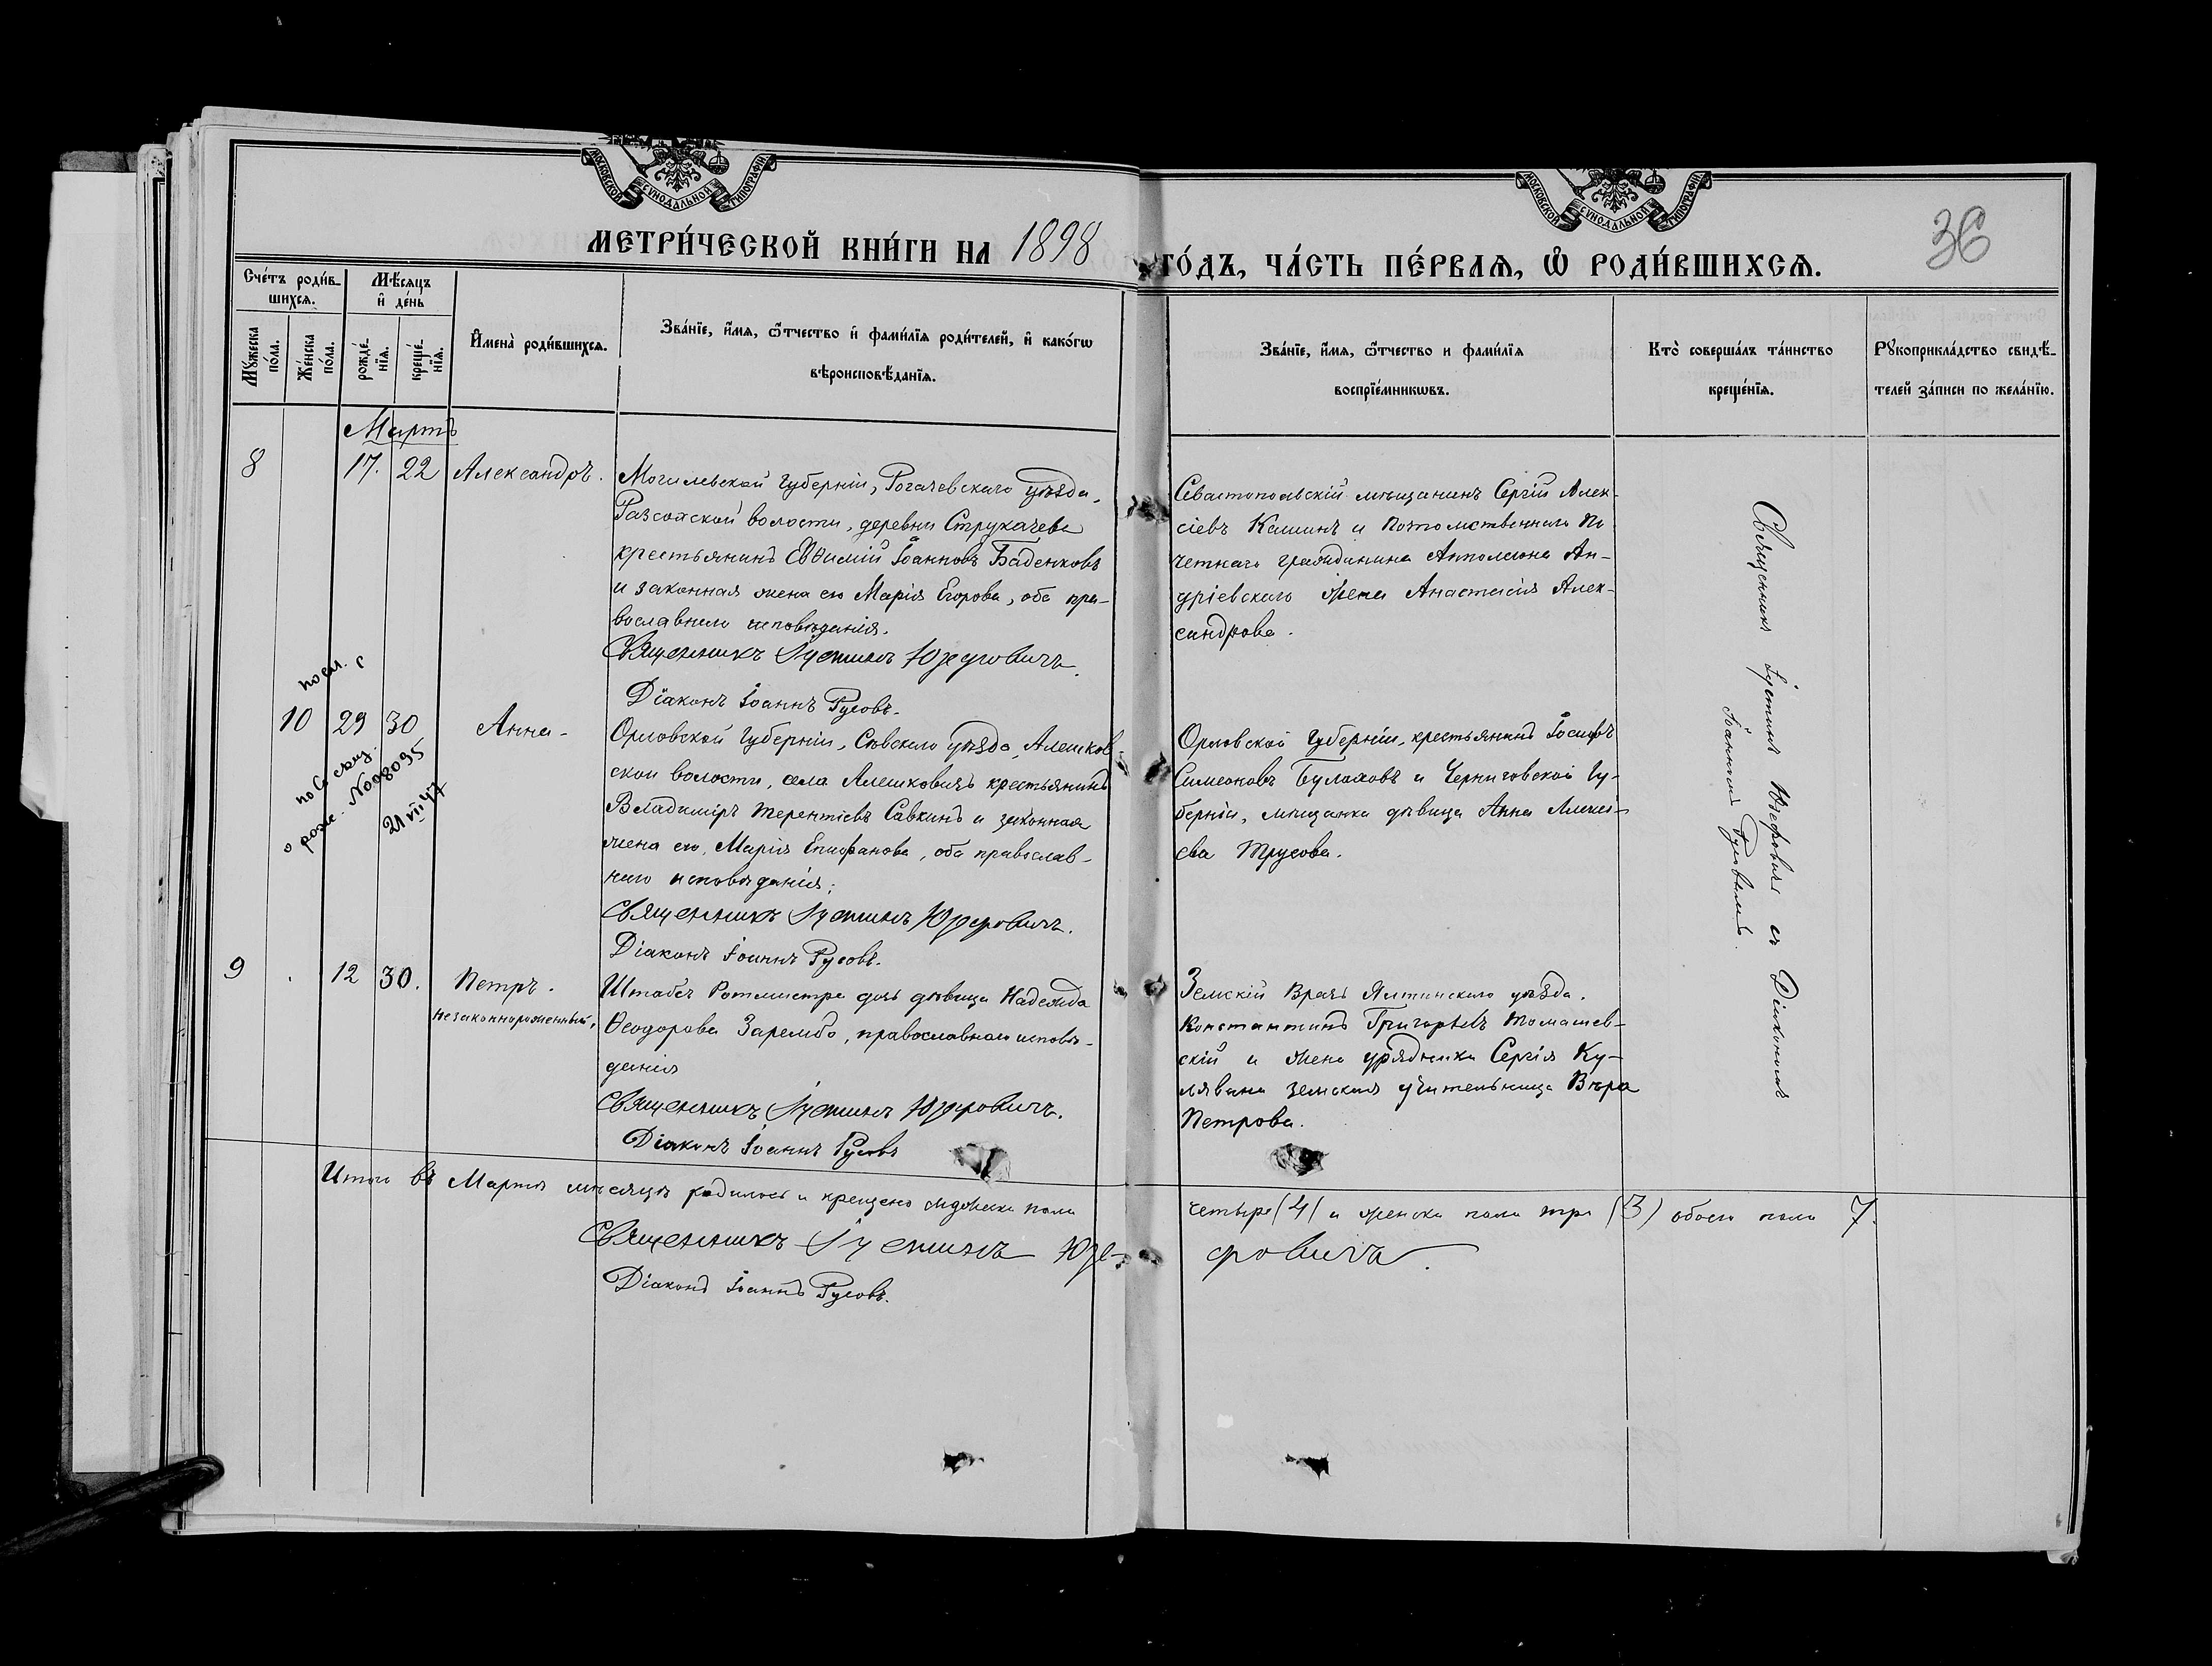 МОСКОВСКОЙ СУНОДАЛЬНОЙ ТИПОГРАФІИ
МОСКОВСКОЙ СУНОДАЛЬНОЙ ТИПОГРАФІИ
36
МЕТРИ́ЧЕСКОЙ КНИ́ГИ НА 1898 ГО́ДЪ, ЧА́СТЬ ПЕ́РВАѦ, Ѡ РОДИ́ВШИХСѦ.
Сче́тъ роди́в-
шихсѧ.
Мѣ́сѧцъ
и҆ де́нь
Мꙋ́жеска
по́ла.
Же́нска
по́ла.
рожде́-
нїѧ.
креще́-
нїѧ.
И҆мена̀ роди́вшихсѧ.
Зва́нїе, и҆́мѧ, ѻ҆́тчество и҆ фами́лїѧ роди́телей, и҆ како́гѡ
вѣроисповѣ́данїѧ.
Зва́нїе, и҆́мѧ, ѻ҆́тчество и фами́лїѧ
воспрїе́мникѡвъ.
Кто̀ соверша́лъ та́инство
креще́нїѧ.
Рꙋкоприкла́дство свидѣ́-
телей за́писи по жела́нїю.
Мартъ
8 17. 22 Александръ.
Могилевской Губерніи, Рогачевскаго уѣзда,
волости, деревни Струкачева
крестьянинъ Евѳимій Іоанновъ Баденковъ
и законная жена его Марія Егорова, оба пра-
вославнаго исповѣданія.
Священникъ Іустинъ Юзефовичъ.
Діаконъ Іоаннъ Русовъ.
Севастопольскій мѣщанинъ Сергій Алек-
сіевъ Кашинъ и Потомственнаго По
четнаго гражданина Ан-
дріевскаго жена Анастасія Алек-
сандрова.
Священникъ Іустинъ Юзефовичъ съ Діакономъ
Іоанномъ Русовымъ.
10 29 30 Анна-
о рожд. №098095
21 VII 47
Орловской Губерніи, Сѣвскаго уѣзда, Алешков-
ской волости, села Алешковичъ крестьянинъ
Владиміръ Терентіевъ Савкинъ и законная
жена его, Марія Епифанова, оба православ-
наго исповѣданія;
Священникъ Іустинъ Юзефовичъ.
Діаконъ Іоаннъ Русовъ.
Орловской Губерніи, крестьянинъ Іосифъ
Симеоновъ Булаховъ и Черниговской Гу-
берніи, мѣщанка дѣвица Анна Алексі-
ева Трусова.
9 12 30. Петръ.
незаконнорожденный,
Штабсъ Ротмистра дочь дѣвица Надежда
Ѳеодорова Зарембо, православнаго исповѣ-
данія
Священникъ Іустинъ Юзефовичъ.
Діаконъ Іоаннъ Русовъ
Земскій Врачъ Ялтинскаго уѣзда.
Константинъ Григорьевъ Томашев-
скій и жена урядника Сергія Ку-
лявина земская учительница Вѣра
Петрова.
Итого въ Мартѣ мѣсяцѣ родилось и крещено мужеска пола четыре (4) и женска пола три (3) обоего пола 7.
Священникъ Іустинъ Юзе-фовичъ.
Діаконъ Іоаннъ Русовъ.